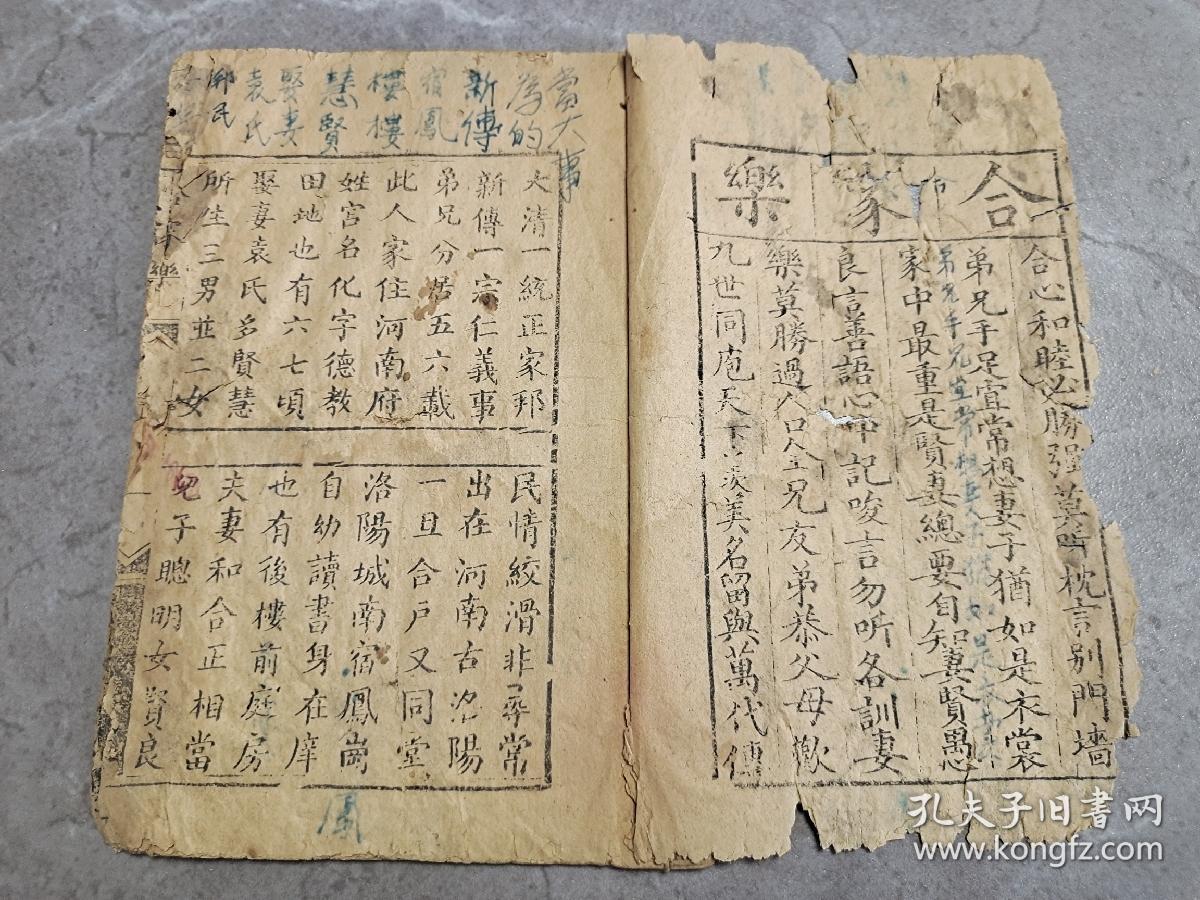 合家樂
合心和睦必勝强莫听枕言别門墻
弟兄手足宜常想妻子猶如是衣裳
家中最重是賢妻總要自知妻賢愚
良言善語心中記唆言勿听各訓妻
樂莫勝過人口全兄友弟恭父母歡
九世同庖天下羨美名留與萬代傳
當大事
為的
新傳
宿鳳
樓樓
慧賢
娶妻
袁氏
邦民
大清一統正家邦
民情絞滑非尋常
新傳一宗仁義事
出在河南古洛陽
弟兄分居五六載
一旦合戶又同堂
此人家住河南府
洛陽城南宿鳳崗
姓宮名化字德教
自幼讀書身在庠
田地也有六七頃
也有後樓前庭房
娶妻袁氏多賢慧
夫妻和合正相當
所生三男並二女
兒子聰明女賢良
樂
鳳
孔夫子旧书网
www.kongfz.com